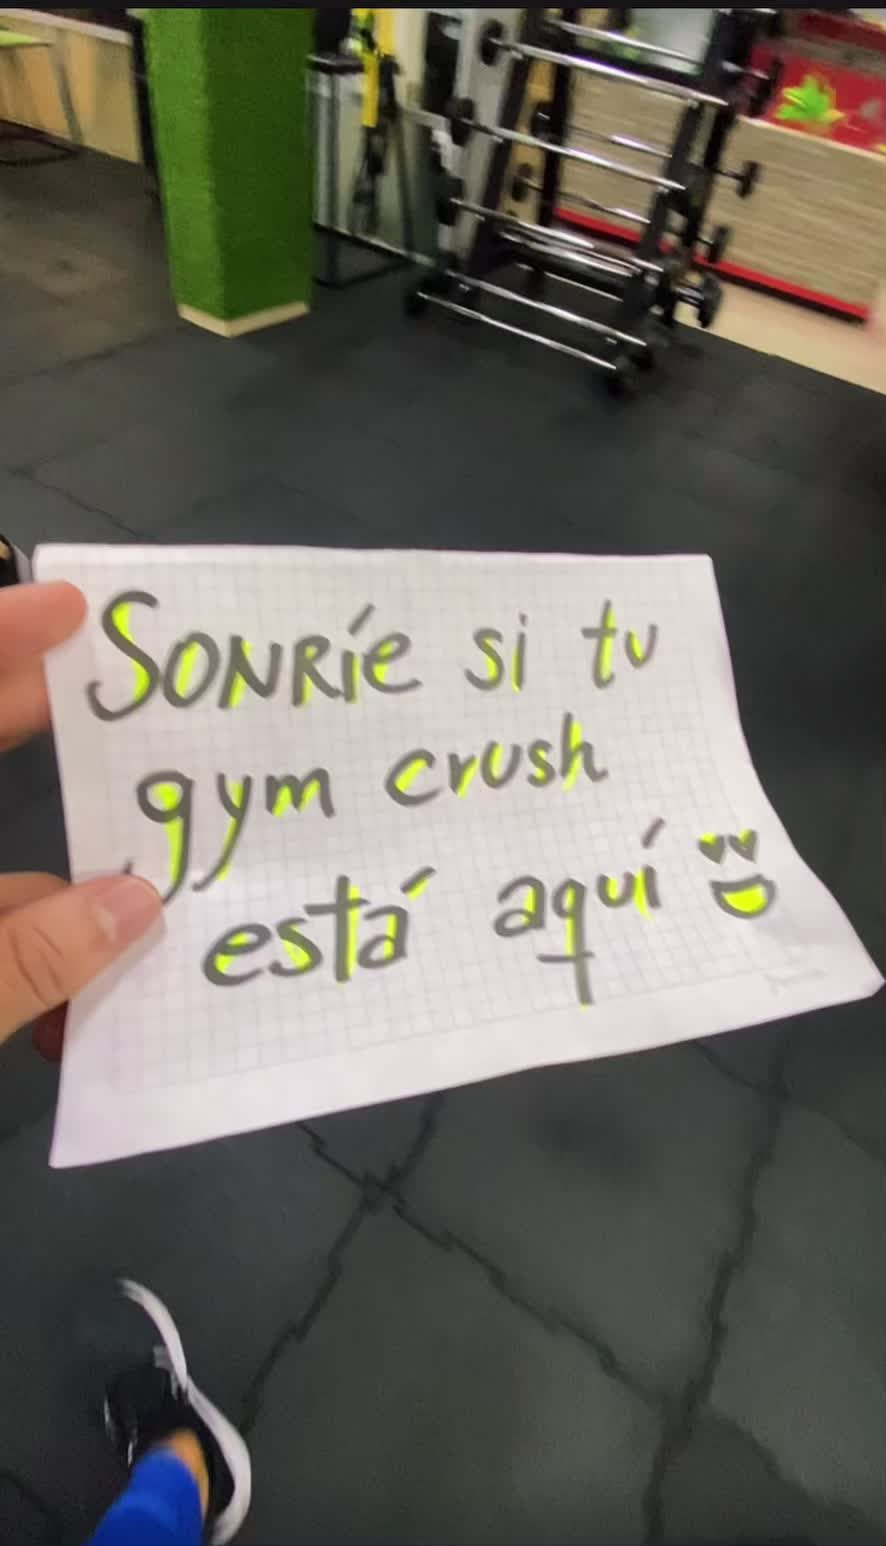 SONRíe si tu
gym crush
está aquí